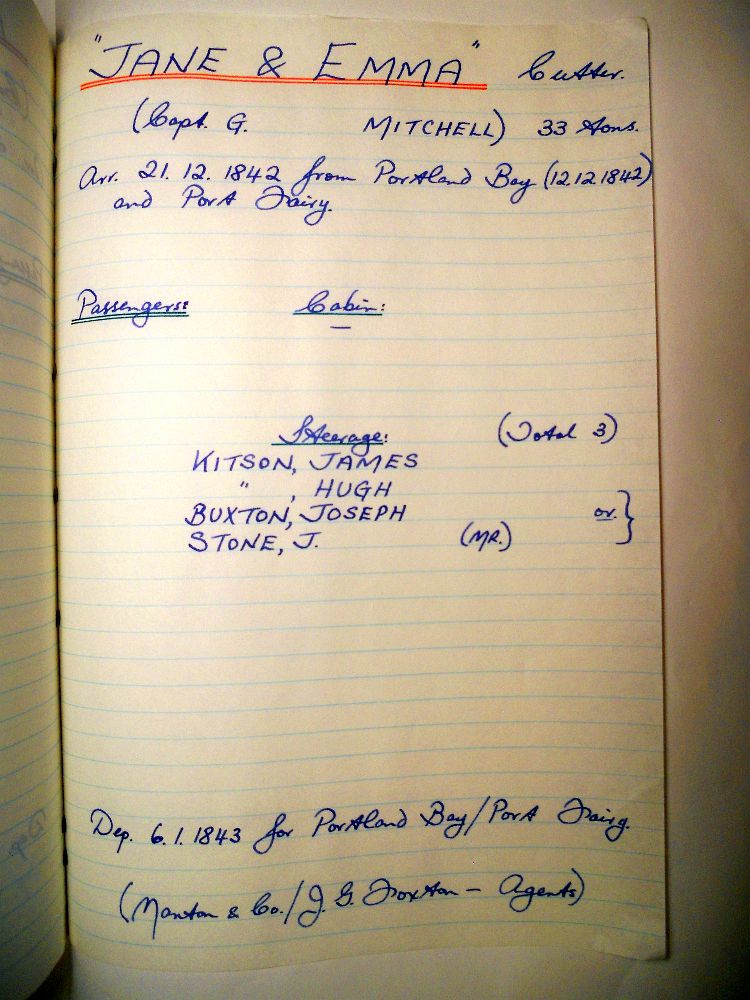 "JANE & EMMA" Cutter.
(Capt. G. MITCHELL) 33 tons.
Arr. 21.12.1842 from Portland Bay (12.12.1842)
and Port Fairy.
Passengers: Cabin:
—
Steerage: (Total 3)
KITSON, JAMES
" , HUGH
BUXTON, JOSEPH
STONE, J. (MR.) or }
Dep. 6.1.1843 for Portland Bay/Port Fairy.
(Manton & Co./J. G. Foxton — Agents)